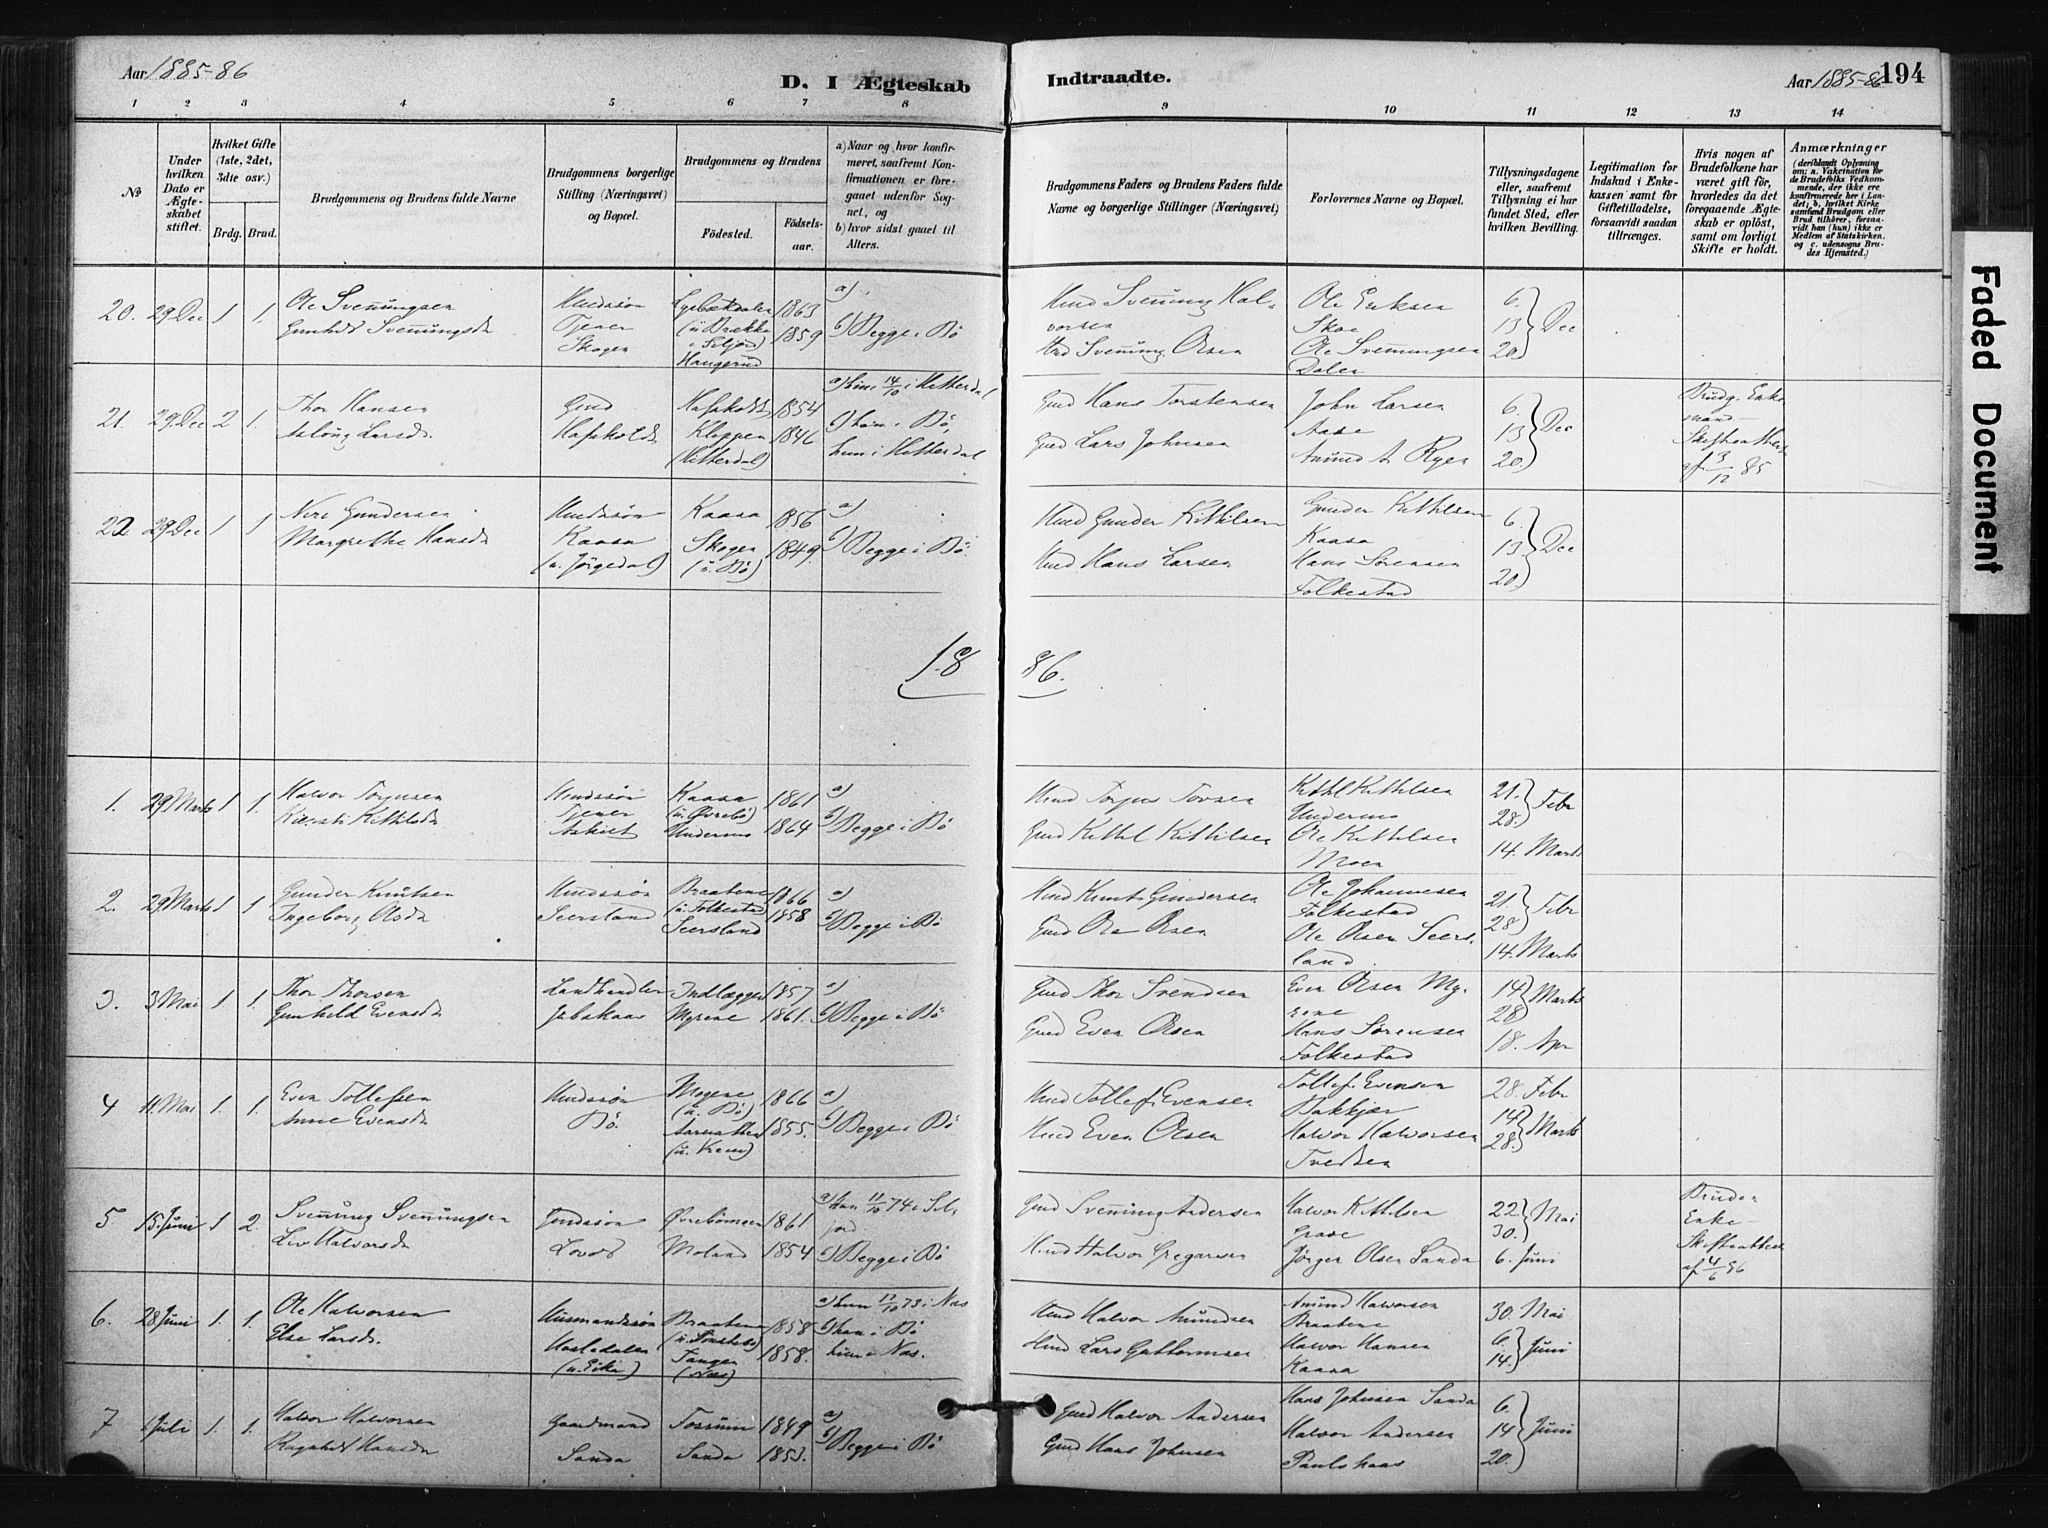 Aar 1885-86
D. I Ægteskab
Indtraadte.
Aar 1885-86
194
1 2 3 4 5 6 7 8 9 10 11 12 13 14
No
Under hvilken Dato er Ægteskabet stiftet.
Hvilket Gifte (1ste, 2det, 3die osv.)
Brdg. Brud.
Brudgommens og Brudens fulde Navne
Brudgommens borgerlige Stilling (Næringsvei) og Bopæl.
Brudgommens og Brudens
Födested.
Födselsaar.
a) Naar og hvor konfirmeret, saafremt Konfirmationen er foregaaet udenfor Sognet, og
b) hvor sidst gaaet til Alters.
Brudgommens Faders og Brudens Faders fulde Navne og borgerlige Stillinger (Næringsvei)
Forlovernes Navne og Bopæl.
Tillysningsdagene eller, saafremt Tillysning ei har fundet Sted, efter hvilken Bevilling.
Legitimation for Indskud i Enkekassen samt for Giftetilladelse, forsaavidt saadan tiltrænges.
Hvis nogen af Brudefolkene har været gift för, hvorledes da det foregaaende Ægteskab er oplöst, samt om lovligt Skifte er holdt.
Anmærkninger
(deriblandt Oplysning om: a. Vakcination for de Brudefolks Vedkommende, der ikke ere konfirmerede her i Landet; b. hvilket Kirkesamfund Brudgom eller Brud tilhörer, forsaavidt han (hun) ikke er Medlem af Statskirken, og c. udensogns Brudes Hjemsted.)
20. 29 Dec 1 1.
Ole Svenungsen
Gunhild Svenungsdr
Tjener
Skogen
(u. Brække
i Seljord)
Haugerud
1863
1859
a)
b) Begge i Bö
Hmd Svenung Halvorsen
Hmd Svenung Olsen
Ole Eriksen
Skoe
Ole Svenungsen
Dalen
6.
13
20.
Dec
21. 29 Dec 2 1.
Thor Hansen
Aslaug Larsdr.
Gmd
Hafskold
Hafskold
Kleppen
(Hitterdal)
1854
1846
a) hun 14/10 i Hitterdal
b) han i Bö,
hun i Hitterdal
Gmd Hans Torstensen
Gmd Lars Johnsen
John Larsen
Aase
Amund A. Ryen
6.
13
20.
Dec
Brudg. Enkemand
Skifteattest
af 3/12 85
22. 29 Dec 1 1
Nils Gundersen
Margrethe Hansdr
Hmdssön
Kaasa
(u. Jörgedal)
Kaasa
Skogen
(u. Bö)
1856
1849.
a)
b) Begge i Bö
Hmd Gunder Kittilsen
Hmd Hans Larsen
Gunder Kittilsen
Kaasa
Hans Sörensen
Folkestad
6.
13
20.
Dec
18 86.
1. 29 Marts 1 1.
Halvor Torjusen
Kittilsdr
Hmdssön
Tjener
Askilt
Kaasa
(u. Övrebö)
Undernes
1861
1864
a)
b) Begge i Bö
Hmd Torjus Tovsen
Gmd Kittil Kittilsen
Kittil Kittilsen
Undernes
Ole Kittilsen
Moen
21.
28.
Febr
14. Marts
2. 29 Marts 1 1
Gunder Knutsen
Ingeborg Olsdr
Hmdssön
Seersland
Braatene
(u. Folkestad)
Seersland
1866
1858
a)
b) Begge i Bö
Hmd Knut Gundersen
Gmd Ole Olsen
Ole Johannesen
Folkestad
Ole Olsen Seersland
21.
28
Febr
14. Marts
3. 3 Mai 1 1.
Thor Thorsen
Gunhild Evensdr
Landhandler
Jabskaas
Indlæggen
Myrene
1857
1861.
a)
b) Begge i Bö
Gmd Thor Svendsen
Gmd Even Olsen
Even Olsen Myrene
Hans Sörensen
Folkestad
14
28
Marts
18. Apr
4 11. Mai 1. 1.
Even Tollefsen
Anne Evensdr
Hmdssön
Bö.
Mogene
(u. Bö)
1866
1855.
a)
b) Begge i Bö
Hmd Tollef Evensen
Hmd Even Olsen
Tollef Evensen
Bakkjær
Halvor Halvorsen
Tvedten
28. Febr
14
28.
Marts
5 15. Juni 1 2.
Svenung Svenungsen
Liv Halvorsdr
Gmdssön
Övrebömoen
Moland
1861
1854
a) Han 11/10 74 i Seljord
b) Begge i Bö
Gmd Svenung Andersen
Hmd Halvor Gregarsen
Halvor Kittilsen
Grave
Jörgen Olsen Sanda
22.
30.
Mai
6. Juni
Bruden
Enke-
Skifteattest
af 4/6 86
6. 28 Juni 1. 1.
Ole Halvorsen
Else Larsdr.
Husmandssön
(u. Eika)
Braatene
Tangen
(Næs)
1858
1858.
a) hun 11/10 73 i Næs
b) han i Bö
hun i Næs.
Hmd Halvor Amundsen
Hmd Lars Guttormsen
Amund Halvorsen
Braatene
Halvor Hansen
Kaasa
30. Mai
6.
14.
Juni
7 1 Juli 1. 1.
Halvor Halvorsen
Ragnhild Hansdr
Gaardmand
Sanda
Sanda
1849
1853.
a)
b) Begge i Bö
Gmd Halvor Andersen
Gmd Hans Johnsen
Hans Johnsen Sanda
Halvor Andersen
Paulshaas
6.
14
20.
Juni
Faded Document